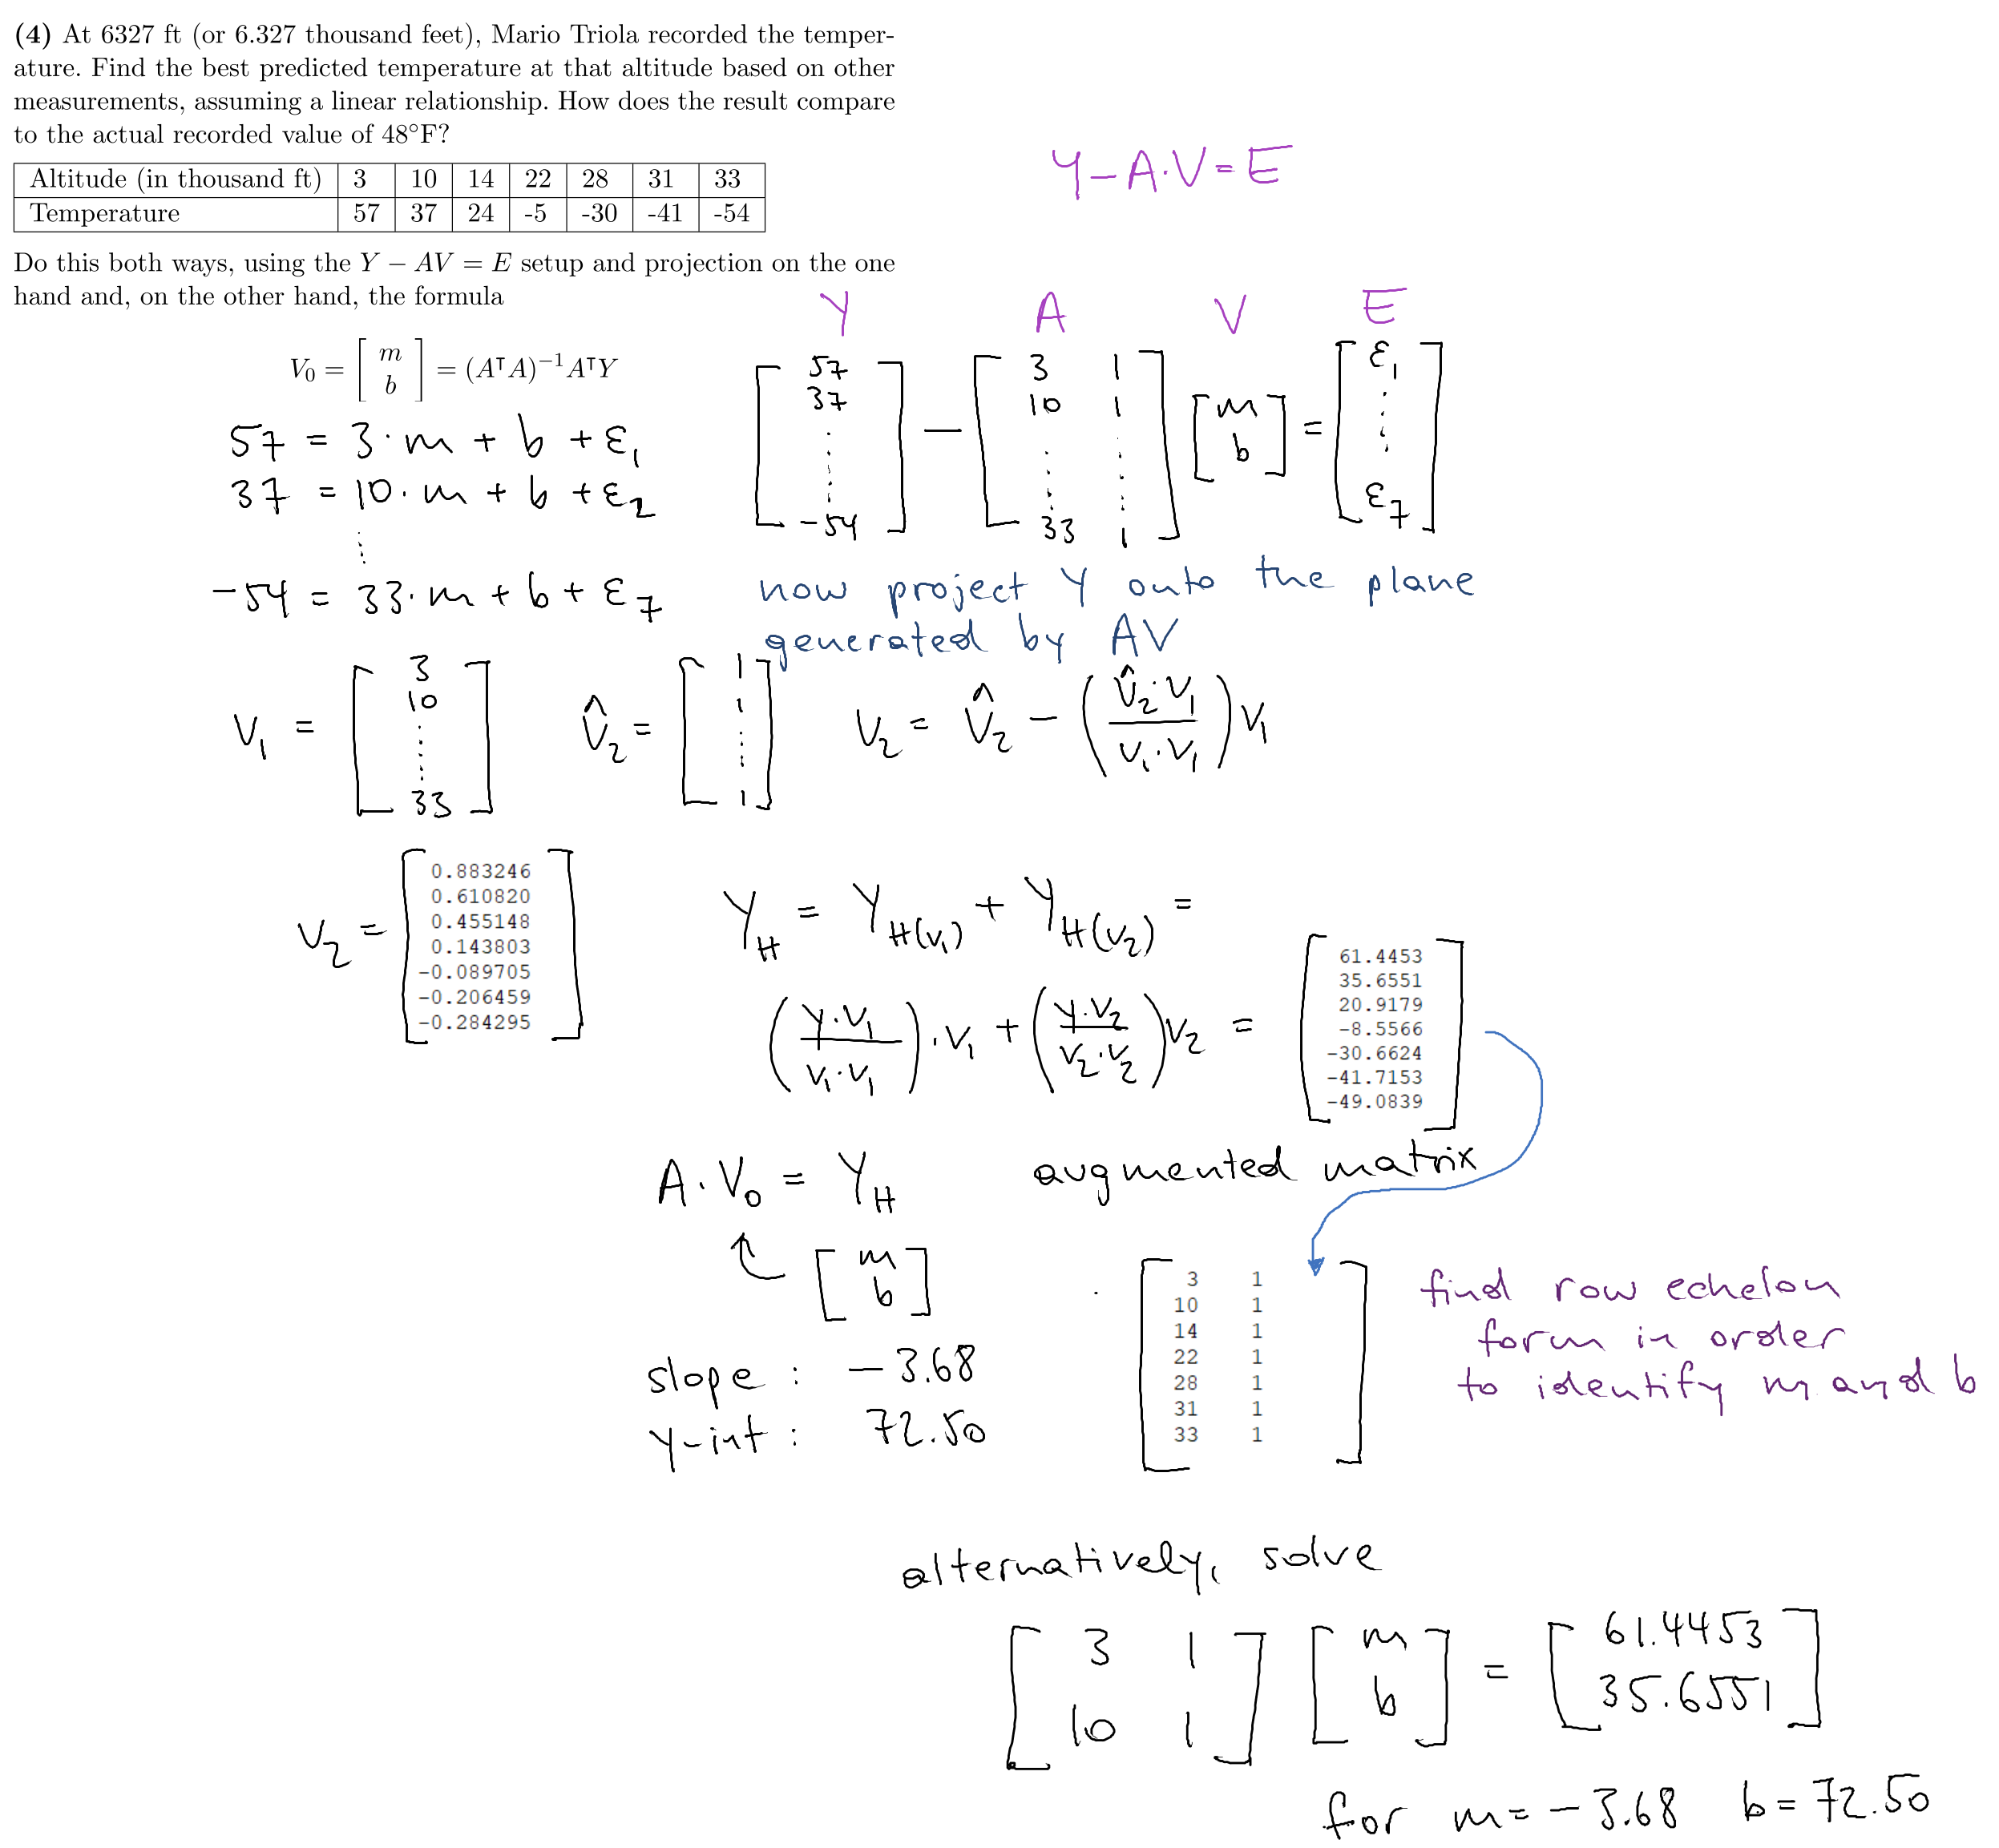 (4) At 6327 ft (or 6.327 thousand feet), Mario Triola recorded the temper-
ature. Find the best predicted temperature at that altitude based on other
measurements, assuming a linear relationship. How does the result compare
to the actual recorded value of 48°F?
Altitude (in thousand ft) 3 10 14 22 28 31 33
Temperature 57 37 24 -5 -30 -41 -54
Y-A·V=E
Do this both ways, using the Y − AV = E setup and projection on the one
hand and, on the other hand, the formula
V₀ = [ m b ] = (AᵀA)⁻¹AᵀY
Y A V E
[ 57 37 ⋮ -54 ] − [ 3 1 10 1 ⋮ ⋮ 33 1 ] [ m b ] = [ ε₁ ⋮ ε₇ ]
57 = 3·m + b + ε₁
37 = 10·m + b + ε₂
⋮
-54 = 33·m + b + ε₇
now project Y onto the plane
generated by AV
v₁ = [ 3 10 ⋮ 33 ] v̂₂ = [ 1 1 ⋮ 1 ] v₂ = v̂₂ − ( v̂₂·v₁ / v₁·v₁ ) v₁
v₂ = [
0.883246
0.610820
0.455148
0.143803
-0.089705
-0.206459
-0.284295
]
Y_H = Y_H(v₁) + Y_H(v₂) =
( Y·v₁ / v₁·v₁ )·v₁ + ( Y·v₂ / v₂·v₂ ) v₂ = [
61.4453
35.6551
20.9179
-8.5566
-30.6624
-41.7153
-49.0839
]
A·V₀ = Y_H
[ m b ]
slope : −3.68
y-int : 72.50
augmented matrix
3 1
10 1
14 1
22 1
28 1
31 1
33 1
find row echelon
form in order
to identify m and b
alternatively, solve
[ 3 1 10 1 ] [ m b ] = [ 61.4453 35.6551 ]
for m = −3.68 b = 72.50